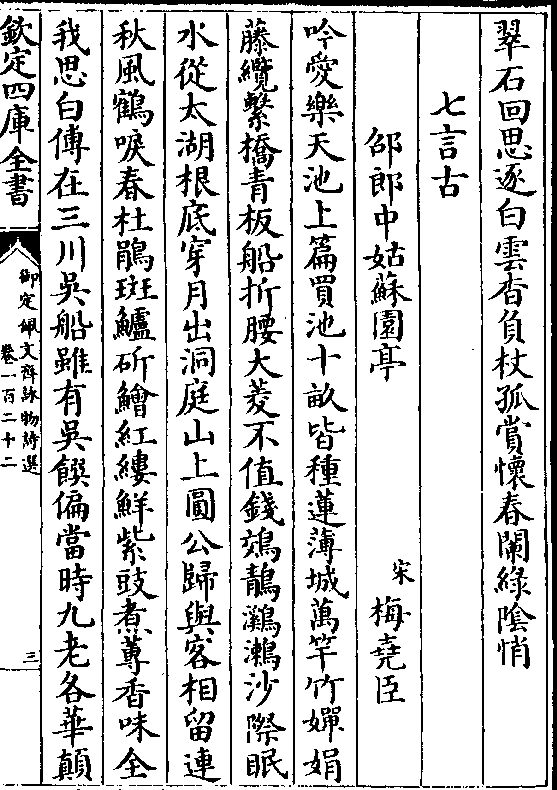 翠石回思逐白雲杳負杖孤賞懷春闌綠陰悄
七言古
邵郎中姑蘇園亭
宋
梅堯臣
吟愛樂天池上篇買池十畝皆種蓮薄城萬竿竹嬋娟
藤纜繫橋青板船折腰大菱不值錢鵁鶄鸂鶒沙際眠
水從太湖根底穿月出洞庭山上圓公歸與客相留連
秋風鶴唳春杜鵑斑鱸斫鱠紅縷鮮紫豉煮蓴香味全
我思白傅在三川吳船雖有吳饌偏當時九老各華顛
欽定四庫全書
御定佩文齋詠物詩選
卷一百二十二
三